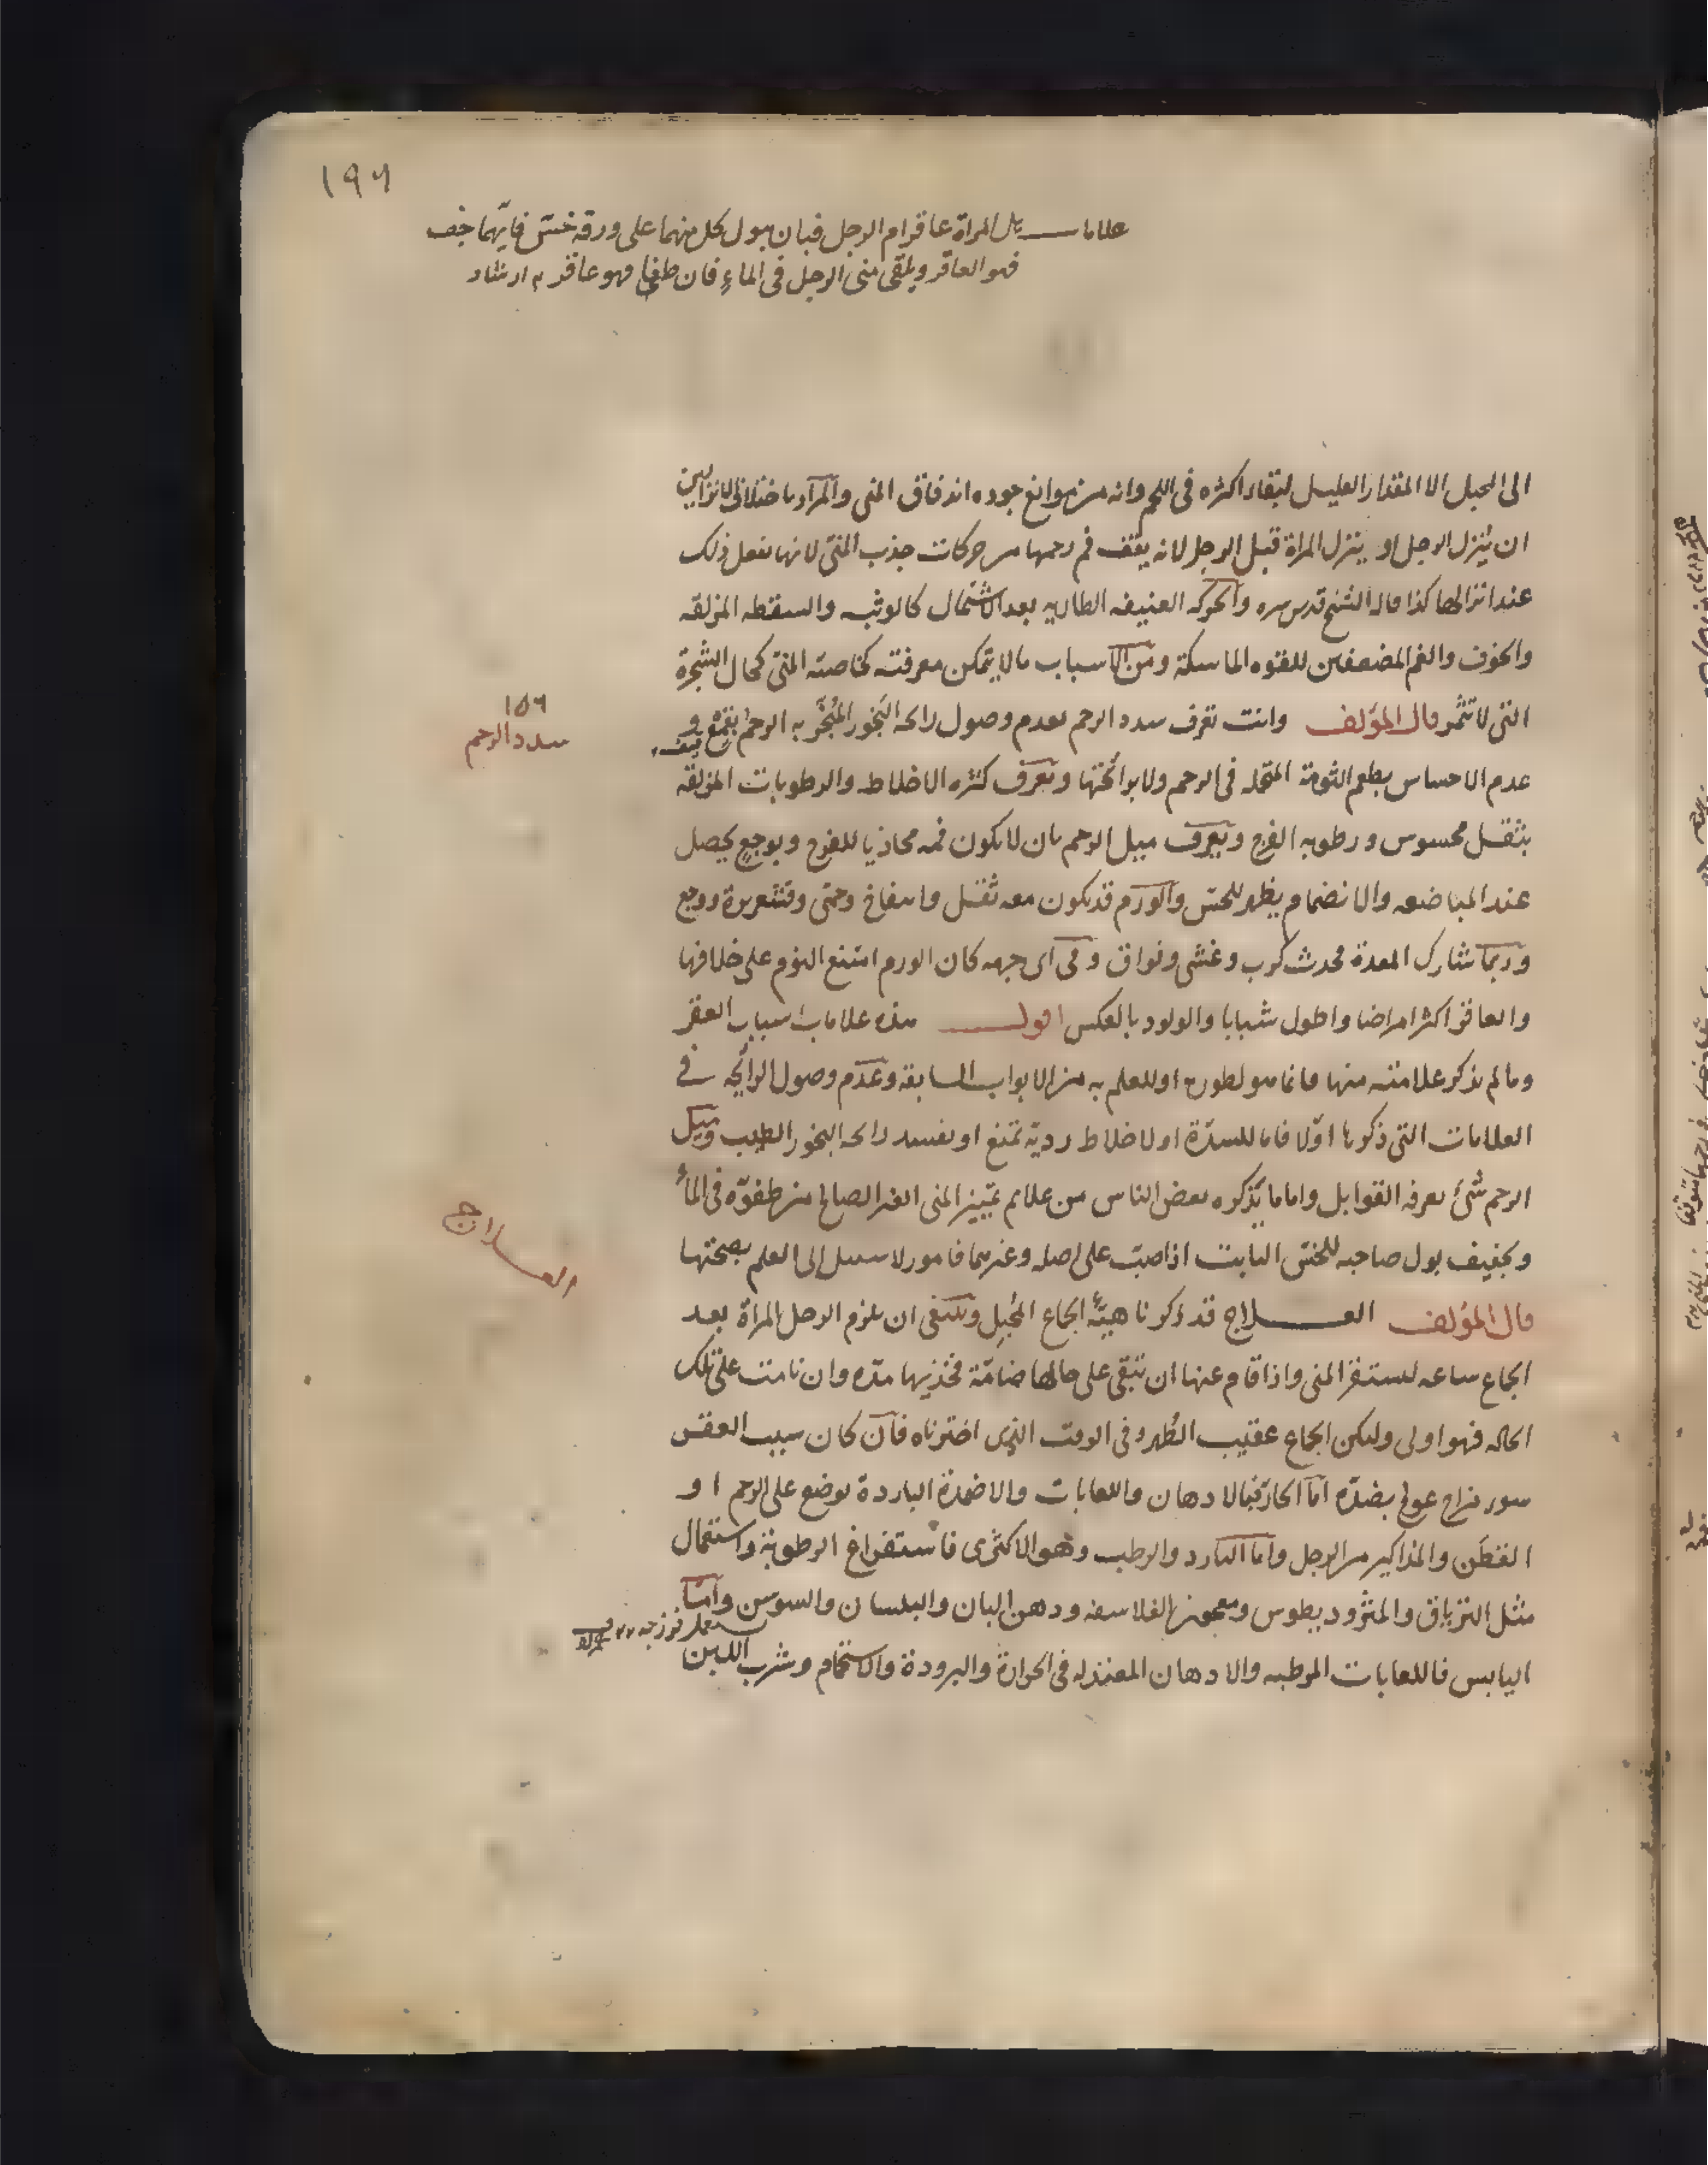 ١٩٦
علامات هل المراة عاقر ام الرجل فبان يبول كل منهما على ورقة خس فايهما جف
فهو العاقر ويلقى منى الرجل فى الماءِ فان طفا فهو عاقر ارشاد
الى الحبل الا المقدار القليل لبقاء اكثره فى اللحم وانه من موانع جوده اندفاق المنى والمراد باختلاف الانزالين
ان يُنزل الرجل او ينزل المراة قبل الرجل لانه يقف فم رحمها من حركات جذب المنى لانها تفعل ذلك
عند انزالها كذا قال الشيخ قدس سره والحركه العنيفه الطاريه بعد الاشتمال كالوثبه والسقطه المزلقه
والخوف والغم المضعفين للقوه الماسكة ومن الاسباب ما لا يتمكن معرفته كخاصته المنى كحال الشجرة
التى لا تثمر قال المؤلف وانت تعرف سدد الرحم بعدم وصول رائحه البَخور المُبَخَّر به الرحم بقمع و
١٥٦
سدد الرحم
عدم الاحساس بطعم الثومة المتحمله فى الرحم ولا برائحتها وتعرف كثره الاخلاط والرطوبات المزلقه
بثقل محسوس ورطوبه الفرج ويعرف ميل الرحم بان لا يكون فمه محاذيا للفرج وبوجع يحصل
عند المباضعه والانضمام يظهر للحس والورم قد يكون معه ثقل وانتفاخ وحمى وقشعريرة ووجع
وربما شارك المعدة فحدث كرب وغشى وفواق وفى اى جهه كان الورم امتنع النوم على خلافها
والعاقر اكثر امراضا واطول شبابا والولود بالعكس اقول هذه علامات اسباب العقر
وما لم يذكر علامته منها فانما هو لظهوره او للعلم به من الابواب السابقه وعدم وصول الرائحه فى
العلامات التى ذكرها اوّلا فاما للسدّة او لاخلاط رديّه تمنع او تفسد رائحه البخور الطيب وميل
الرحم شئ يعرفه القوابل واما ما يذكره بعض الناس من علائم تمييز المنى الغير الصالح من طفوّه فى الماء
وتجفيف بول صاحبه للخسّ النابت اذا صبّ على اصله وغيرهما فامور لا سبيل الى العلم بصحتها
العلاج
قال المؤلف العلاج قد ذكرنا هيئة الجماع المُحبِل وينبغى ان يلزم الرجل المراة بعد
الجماع ساعه ليستقر المنى واذا قام عنها ان تبقى على حالها ضامّة فخذيها مدّه وان نامت على تلك
الحاله فهو اولى وليكن الجماع عقيب الطُهر وفى الوقت الذى اخترناه فان كان سبب العقر
سوء مزاج عولج بضدّه اما الحار فبالادهان واللعابات والاضمدة الباردة توضع على الرحم او
القطَن والمذاكير من الرجل واما البارد والرطب وهو الاكثرى فاستفراغ الرطوبة واستعمال
مثل الترياق والمثروديطوس ومعجون الفلاسفه ودهن البان والبلسان والسوسن واما
اليابس فاللعابات المرطبه والادهان المعتدله فى الحرارة والبرودة والاستحمام وشرب اللبن